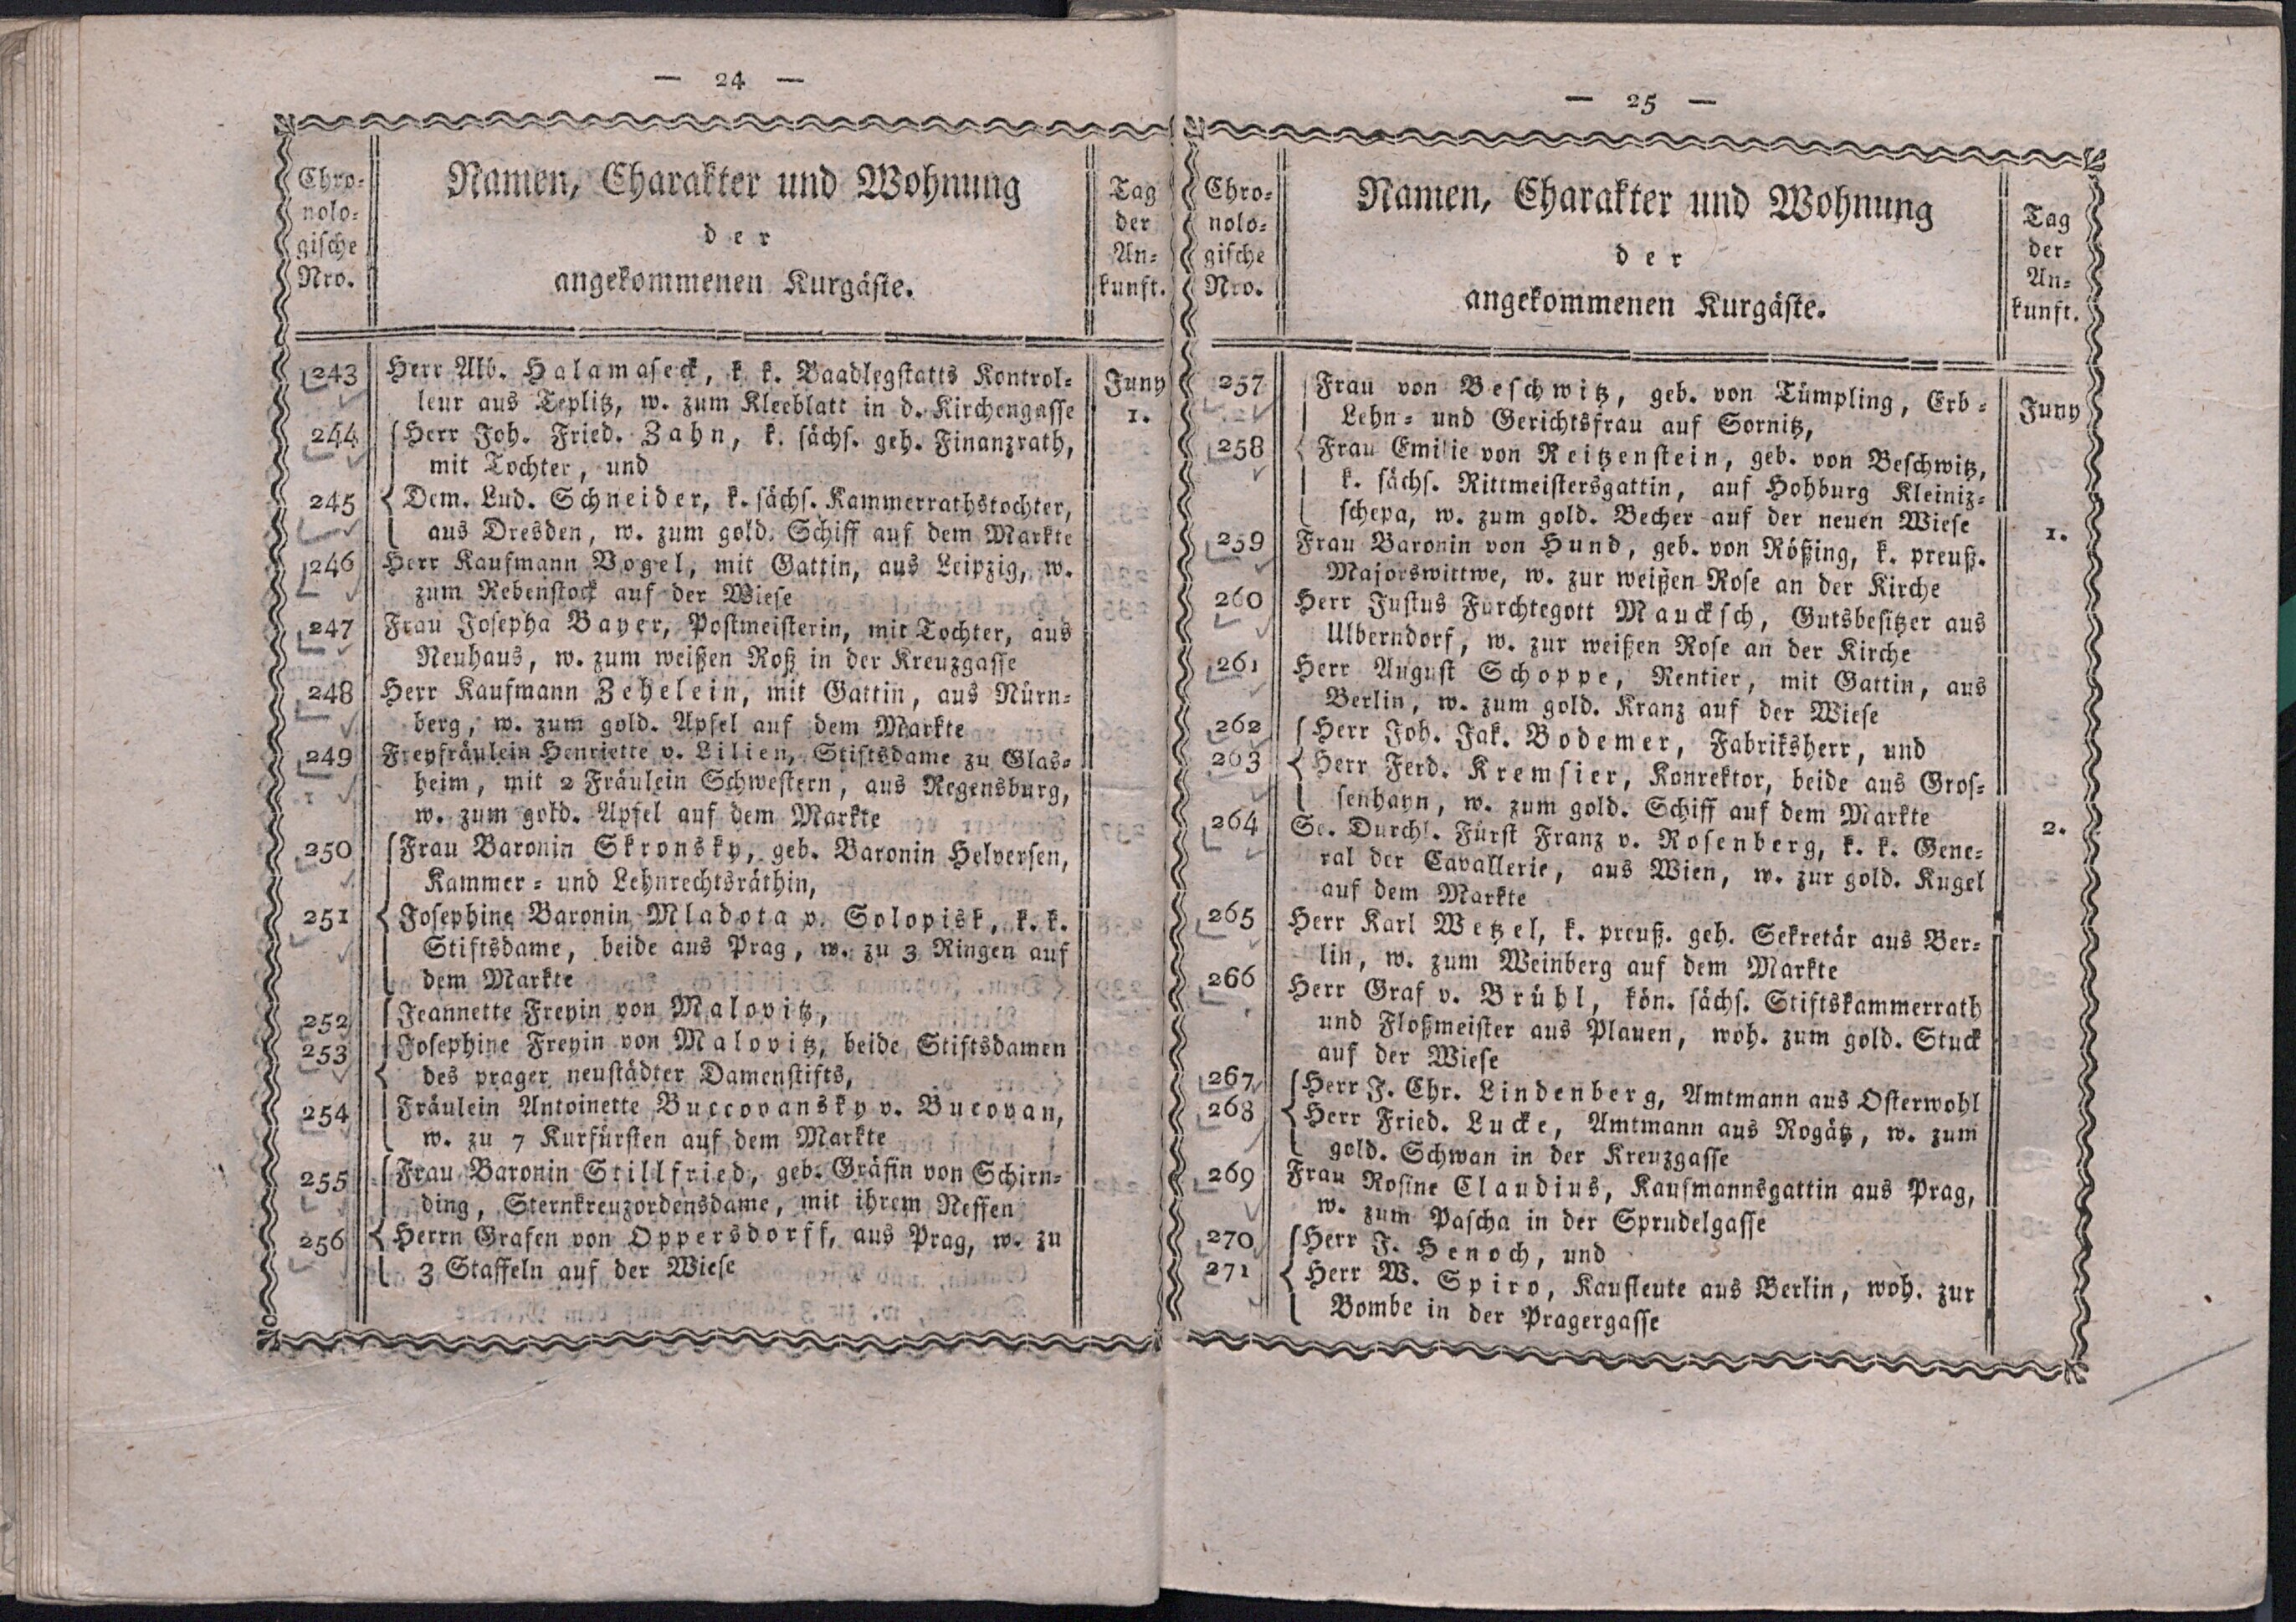 — 24 —
Chro-
nolo-
gische
Nro.
Namen, Charakter und Wohnung
der
angekommenen Kurgäste.
Tag
der
An-
kunft.
243 Herr Alb. Halamaseck, k k. Baadlegstatts Kontrol- Juny
leur aus Teplitz, w. zum Kleeblatt in d. Kirchengasse 1.
244 Herr Joh. Fried. Zahn, k. sächs. geh. Finanzrath,
mit Tochter, und
245 Dem. Lud. Schneider, k. sächs. Kammerrathstochter,
aus Dresden, w. zum gold. Schiff auf dem Markte
246 Herr Kaufmann Vogel, mit Gattin, aus Leipzig, w.
zum Rebenstock auf der Wiese
247 Frau Josepha Bayer, Postmeisterin, mit Tochter, aus
Neuhaus, w. zum weißen Roß in der Kreuzgasse
248 Herr Kaufmann Zehelein, mit Gattin, aus Nürn-
berg, w. zum gold. Apfel auf dem Markte
249 Freyfräulein Henriette v. Lilien, Stiftsdame zu Glas-
heim, mit 2 Fräulein Schwestern, aus Regensburg,
w. zum gold. Apfel auf dem Markte
250 Frau Baronin Skronsky, geb. Baronin Helversen,
Kammer- und Lehnrechtsräthin,
251 Josephine Baronin Mladota v. Solopisk, k. k.
Stiftsdame, beide aus Prag, w. zu 3 Ringen auf
dem Markte
252 Jeannette Freyin von Malovitz,
253 Josephine Freyin von Malovitz, beide Stiftsdamen
des prager neustädter Damenstifts,
254 Fräulein Antoinette Buccovansky v. Bucovan,
w. zu 7 Kurfürsten auf dem Markte
255 Frau Baronin Stillfried, geb. Gräfin von Schirn-
ding, Sternkreuzordensdame, mit ihrem Neffen
256 Herrn Grafen von Oppersdorff, aus Prag, w. zu
3 Staffeln auf der Wiese
— 25 —
Chro-
nolo-
gische
Nro.
Namen, Charakter und Wohnung
der
angekommenen Kurgäste.
Tag
der
An-
kunft.
257 Frau von Beschwitz, geb. von Tümpling, Erb- Juny
Lehn- und Gerichtsfrau auf Sornitz,
258 Frau Emilie von Reitzenstein, geb. von Beschwitz,
k. sächs. Rittmeistersgattin, auf Hohburg Kleiniz-
schepa, w. zum gold. Becher auf der neuen Wiese 1.
259 Frau Baronin von Hund, geb. von Rößing, k. preuß.
Majorswittwe, w. zur weißen Rose an der Kirche
260 Herr Justus Furchtegott Maucksch, Gutsbesitzer aus
Ulberndorf, w. zur weißen Rose an der Kirche
261 Herr August Schoppe, Rentier, mit Gattin, aus
Berlin, w. zum gold. Kranz auf der Wiese
262 Herr Joh. Jak. Bodemer, Fabriksherr, und
263 Herr Ferd. Kremsier, Konrektor, beide aus Gros-
senhayn, w. zum gold. Schiff auf dem Markte
264 Se. Durchl. Fürst Franz v. Rosenberg, k. k. Gene- 2.
ral der Cavallerie, aus Wien, w. zur gold. Kugel
auf dem Markte
265 Herr Karl Wetzel, k. preuß. geh. Sekretär aus Ber-
lin, w. zum Weinberg auf dem Markte
266 Herr Graf v. Brühl, kön. sächs. Stiftskammerrath
und Floßmeister aus Plauen, woh. zum gold. Stuck
auf der Wiese
267 Herr J. Chr. Lindenberg, Amtmann aus Osterwohl
268 Herr Fried. Lucke, Amtmann aus Rogätz, w. zum
gold. Schwan in der Kreuzgasse
269 Frau Rosine Claudius, Kaufmannsgattin aus Prag,
w. zum Pascha in der Sprudelgasse
270 Herr J. Henoch, und
271 Herr W. Spiro, Kaufleute aus Berlin, woh. zur
Bombe in der Pragergasse